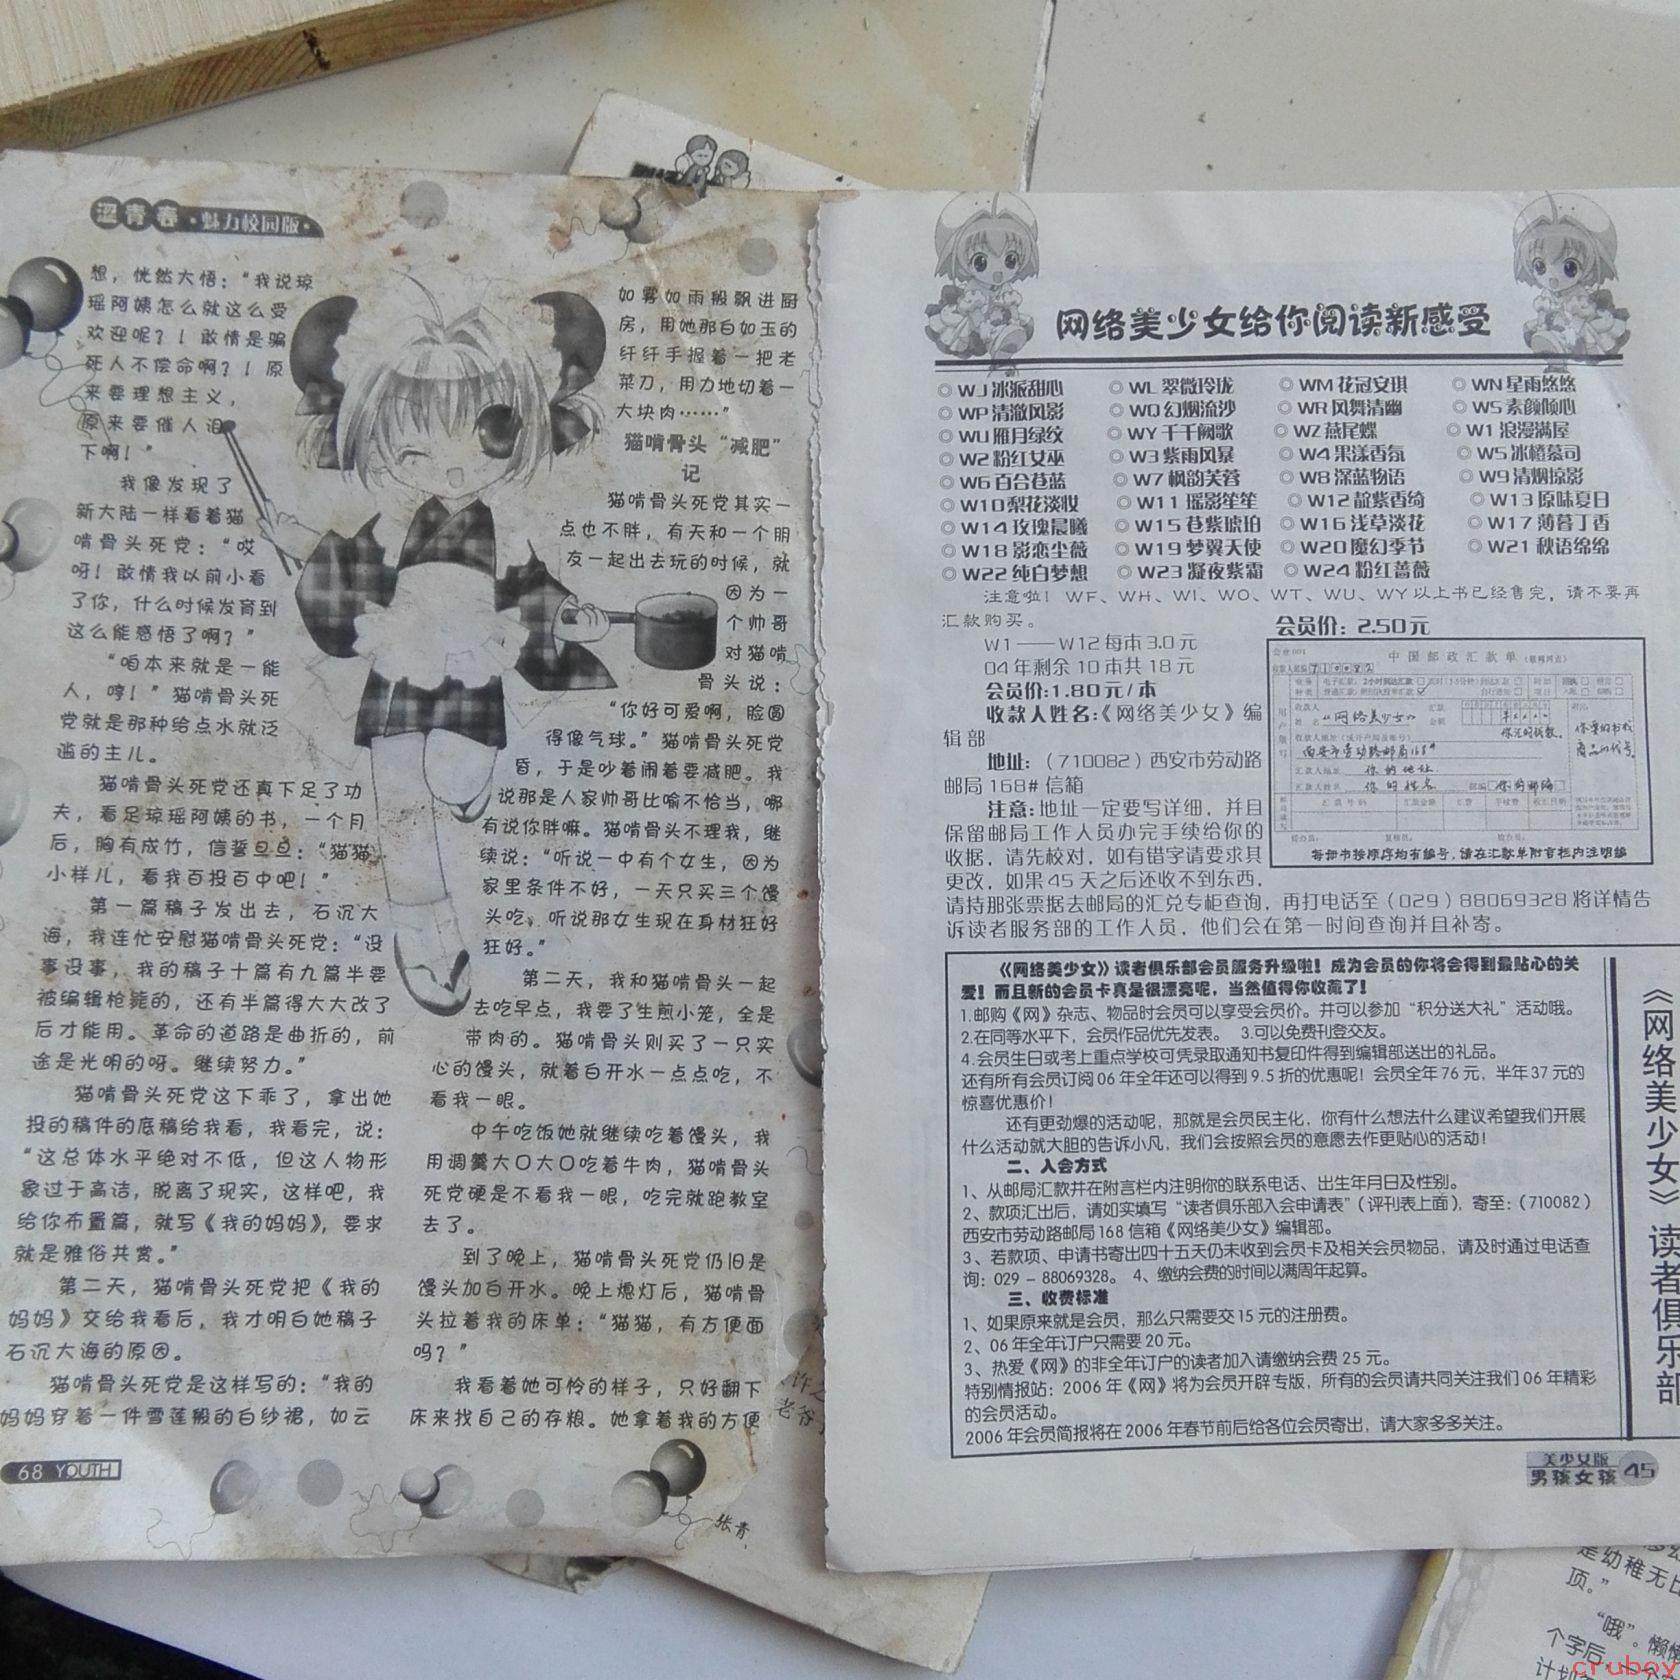 涩青春·魅力校园版·
想，恍然大悟：“我说琼
瑶阿姨怎么就这么受
欢迎呢？！敢情是骗
死人不偿命啊？！原
来要理想主义，
原来要催人泪
下啊！”
我像发现了
新大陆一样看着猫
啃骨头死党：“哎
呀！敢情我以前小看
了你，什么时候发育到
这么能感悟了啊？”
“咱本来就是一能
人，哼！”猫啃骨头死
党就是那种给点水就泛
滥的主儿。
猫啃骨头死党还真下足了功
夫，看足琼瑶阿姨的书，一个月
后，胸有成竹，信誓旦旦：“猫猫，
小样儿，看我百投百中吧！”
第一篇稿子发出去，石沉大
海，我连忙安慰猫啃骨头死党：“没
事没事，我的稿子十篇有九篇半要
被编辑枪毙的，还有半篇得大大改了
后才能用。革命的道路是曲折的，前
途是光明的呀。继续努力。”
猫啃骨头死党这下乖了，拿出她
投的稿件的底稿给我看，我看完，说：
“这总体水平绝对不低，但这人物形
象过于高洁，脱离了现实，这样吧，我
给你布置篇，就写《我的妈妈》，要求
就是雅俗共赏。”
第二天，猫啃骨头死党把《我的
妈妈》交给我看后，我才明白她稿子
石沉大海的原因。
猫啃骨头死党是这样写的：“我的
妈妈穿着一件雪莲般的白纱裙，如云
68 YOUTH
如雾如雨般飘进厨
房，用她那白如玉的
纤纤手握着一把老
菜刀，用力地切着一
大块肉……”
猫啃骨头“减肥”
记
猫啃骨头死党其实一
点也不胖，有天和一个朋
友一起出去玩的时候，就
因为一
个帅哥
对猫啃
骨头说：
“你好可爱啊，脸圆
得像气球。”猫啃骨头死党
昏，于是吵着闹着要减肥。我
说那是人家帅哥比喻不恰当，哪
有说你胖嘛。猫啃骨头不理我，继
续说：“听说一中有个女生，因为
家里条件不好，一天只买三个馒
头吃，听说那女生现在身材狂好
狂好。”
第二天，我和猫啃骨头一起
去吃早点，我要了生煎小笼，全是
带肉的。猫啃骨头则买了一只实
心的馒头，就着白开水一点点吃，不
看我一眼。
中午吃饭她就继续吃着馒头，我
用调羹大口大口吃着牛肉，猫啃骨头
死党硬是不看我一眼，吃完就跑教室
去了。
到了晚上，猫啃骨头死党仍旧是
馒头加白开水。晚上熄灯后，猫啃骨
头拉着我的床单：“猫猫，有方便面
吗？”
我看着她可怜的样子，只好翻下
床来找自己的存粮。她拿着我的方便
张青
网络美少女给你阅读新感受
◎WJ冰派甜心 ◎WL翠微玲珑 ◎WM花冠安琪 ◎WN星雨悠悠
◎WP清澈风影 ◎WQ幻烟流沙 ◎WR风舞清幽 ◎WS素颜倾心
◎WU雁月绿纹 ◎WY千千阙歌 ◎WZ燕尾蝶 ◎W1浪漫满屋
◎W2粉红女巫 ◎W3紫雨风暴 ◎W4果漾香氛 ◎W5冰楂慕司
◎W6百合苍蓝 ◎W7枫韵芙蓉 ◎W8深蓝物语 ◎W9清烟掠影
◎W10梨花淡妆 ◎W11瑶影笙笙 ◎W12靛紫香绮 ◎W13原味夏日
◎W14玫瑰晨曦 ◎W15苍紫琥珀 ◎W16浅草淡花 ◎W17薄暮丁香
◎W18影恋尘薇 ◎W19梦翼天使 ◎W20魔幻季节 ◎W21秋语绵绵
◎W22纯白梦想 ◎W23凝夜紫霜 ◎W24粉红蔷薇
注意啦！WF、WH、WI、WO、WT、WU、WY以上书已经售完，请不要再
汇款购买。
W1——W12每本3.0元
04年剩余10本共18元
会员价：1.80元/本
收款人姓名：《网络美少女》编
辑部
地址：（710082）西安市劳动路
邮局168#信箱
注意：地址一定要写详细，并且
保留邮局工作人员办完手续给你的
收据，请先校对，如有错字请要求其
更改，如果45天之后还收不到东西，
请持那张票据去邮局的汇兑专柜查询，再打电话至（029）88069328将详情告
诉读者服务部的工作人员，他们会在第一时间查询并且补寄。
会员价：2.50元
中国邮政汇款单
710082
《网络美少女》
你汇的钱数。
西安市劳动路邮局168#
你的地址
你的姓名
你的邮编
你要的书或
商品的代号。
每册书按顺序均有编号，请在汇款单附言栏内注明编
《网络美少女》读者俱乐部会员服务升级啦！成为会员的你将会得到最贴心的关
爱！而且新的会员卡真是很漂亮呢，当然值得你收藏了！
1.邮购《网》杂志、物品时会员可以享受会员价。并可以参加“积分送大礼”活动哦。
2.在同等水平下，会员作品优先发表。 3.可以免费刊登交友。
4.会员生日或考上重点学校可凭录取通知书复印件得到编辑部送出的礼品。
还有所有会员订阅06年全年还可以得到9.5折的优惠呢！会员全年76元，半年37元的
惊喜优惠价！
还有更劲爆的活动呢，那就是会员民主化，你有什么想法什么建议希望我们开展
什么活动就大胆的告诉小凡，我们会按照会员的意愿去作更贴心的活动！
二、入会方式
1、从邮局汇款并在附言栏内注明你的联系电话、出生年月日及性别。
2、款项汇出后，请如实填写“读者俱乐部入会申请表”（评刊表上面），寄至：（710082）
西安市劳动路邮局168信箱《网络美少女》编辑部。
3、若款项、申请书寄出四十五天仍未收到会员卡及相关会员物品，请及时通过电话查
询：029－88069328。 4、缴纳会费的时间以满周年起算。
三、收费标准
1、如果原来就是会员，那么只需要交15元的注册费。
2、06年全年订户只需要20元。
3、热爱《网》的非全年订户的读者加入请缴纳会费25元。
特别情报站：2006年《网》将为会员开辟专版，所有的会员请共同关注我们06年精彩
的会员活动。
2006年会员简报将在2006年春节前后给各位会员寄出，请大家多多关注。
《网络美少女》读者俱乐部
美少女版
男孩女孩 45
是幼稚无比
项。”
“哦”。懒懒
个字后
crubox